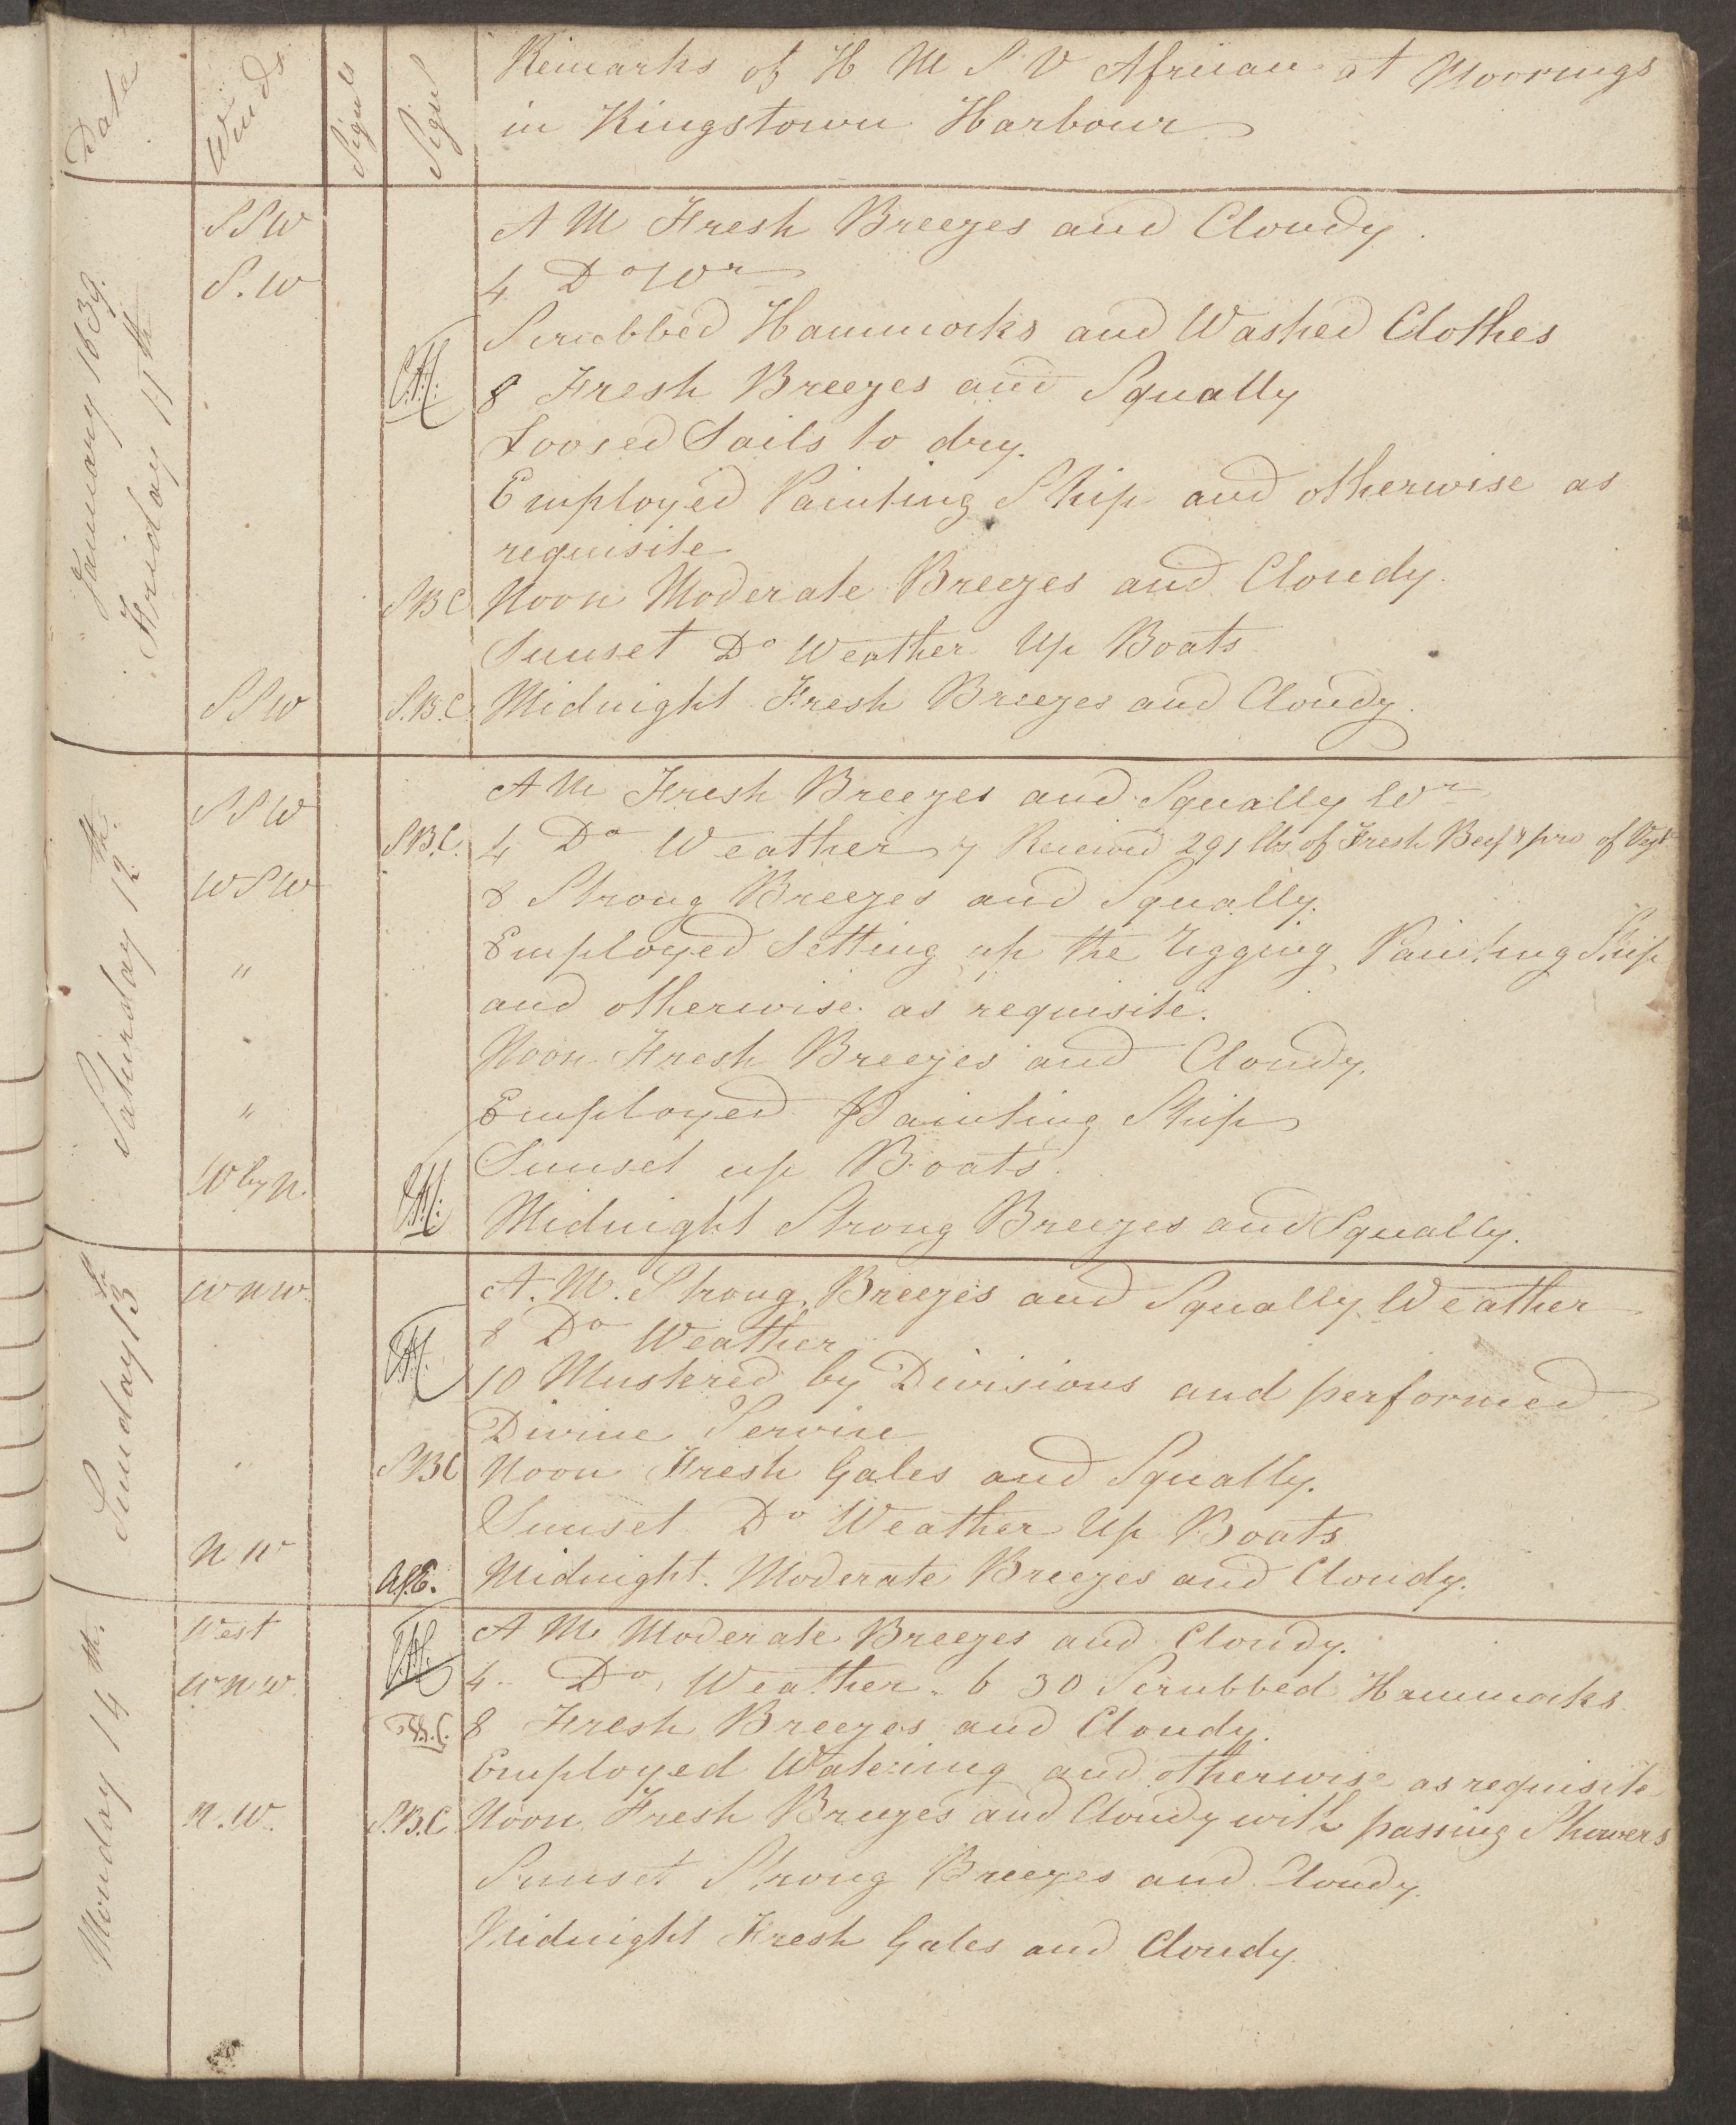 Date Winds Signls Signl Remarks of H M S V African at Moorings
in Kingstown Harbour
January 1839.
Friday 11th
SSW A M Fresh Breezes and Cloudy.
S.W 4 Do Wr
Scrubbed Hammocks and Washed Clothes
8 Fresh Breezes and Squally
Loosed Sails to dry.
Employed Painting Ship and otherwise as
requisite
SBC Noon Moderate Breezes and Cloudy.
Sunset Do Weather Up Boats
SSW S.B.C. Midnight Fresh Breezes and Cloudy.
Saturday 12th.
SSW A M Fresh Breezes and Squally Wr
S.B.C. 4 Do Weather 7 Received 291 lbs of Fresh Beef & pro of Vegt
WSW 8 Strong Breezes and Squally.
Employed Setting up the rigging, Painting Ship
" and otherwise as requisite.
Noon Fresh Breezes and Cloudy.
" Employed Painting Ship
Sunset up Boats.
W by N. Midnight Strong Breezes and Squally.
Sunday 13th
WNW. A. M. Strong Breezes and Squally Weather
8 Do Weather
10 Mustered by Divisions and performed
Divine Service
" SBC Noon Fresh Gales and Squally.
Sunset Do Weather Up Boats
NW Midnight. Moderate Breezes and Cloudy.
Monday 14th.
West A M Moderate Breezes and Cloudy.
WNW. 4.. Do, Weather. 6 30 Scrubbed Hammocks
8 Fresh Breezes and Cloudy.
Employed Watering and otherwise as requisite
N.W. S.B.C. Noon Fresh Breezes and Cloudy with passing Showers
Sunset Strong Breezes and Cloudy.
Midnight Fresh Gales and Cloudy.